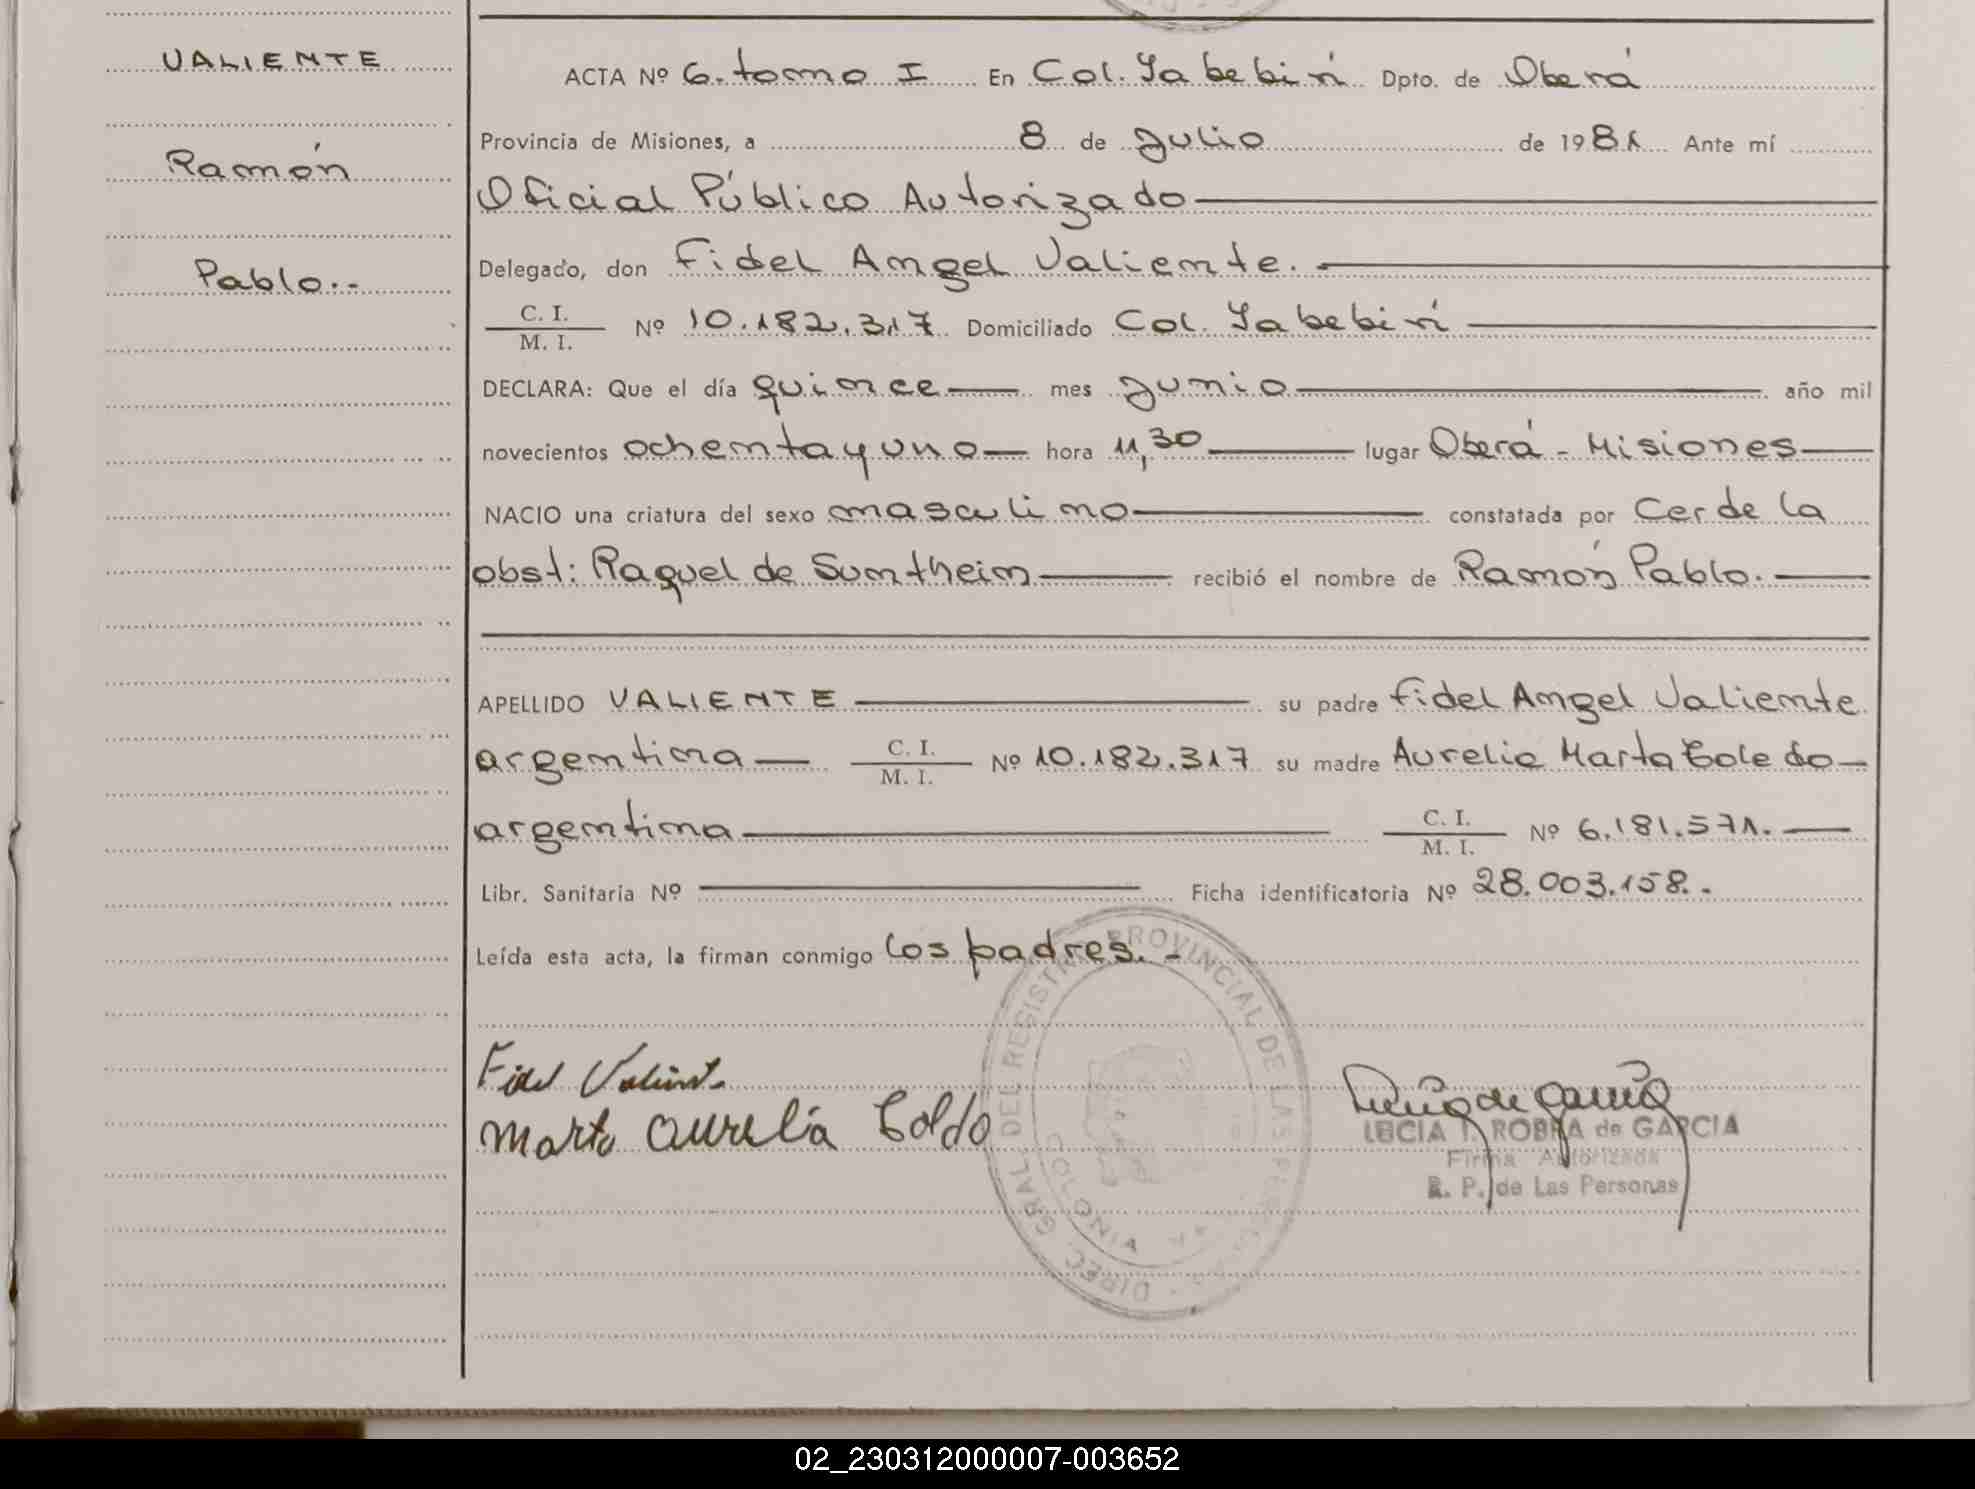 VALIENTE
Ramón
Pablo.-
ACTA Nº 6. tomo I En Col. Yabebirí Dpto. de Oberá
Provincia de Misiones, a 8 de Julio de 1981 Ante mí
Oficial Público Autorizado
Delegado, don Fidel Angel Valiente.
C. I.
M. I. Nº 10.182.317 Domiciliado Col. Yabebirí
DECLARA: Que el día quince mes Junio año mil
novecientos ochenta y uno hora 11,30 lugar Oberá - Misiones
NACIO una criatura del sexo masculino constatada por Cer de la
obst: Raquel de Sumtheim recibió el nombre de Ramón Pablo.
APELLIDO VALIENTE su padre Fidel Angel Valiente
argentina C. I.
M. I. Nº 10.182.317 su madre Aurelia Marta Toledo
argentina C. I.
M. I. Nº 6.181.571.
Libr. Sanitaria Nº Ficha identificatoria Nº 28.003.158.-
Leída esta acta, la firman conmigo los padres.-
Fidel Valient
Marta Aurelia Toldo
LUCIA I. ROBRA de GARCIA
Firma Autorizada
R. P. de Las Personas
DIREC. GRAL. DEL REGISTRO PROVINCIAL DE LAS PERSONAS
COLONIA
02_230312000007-003652